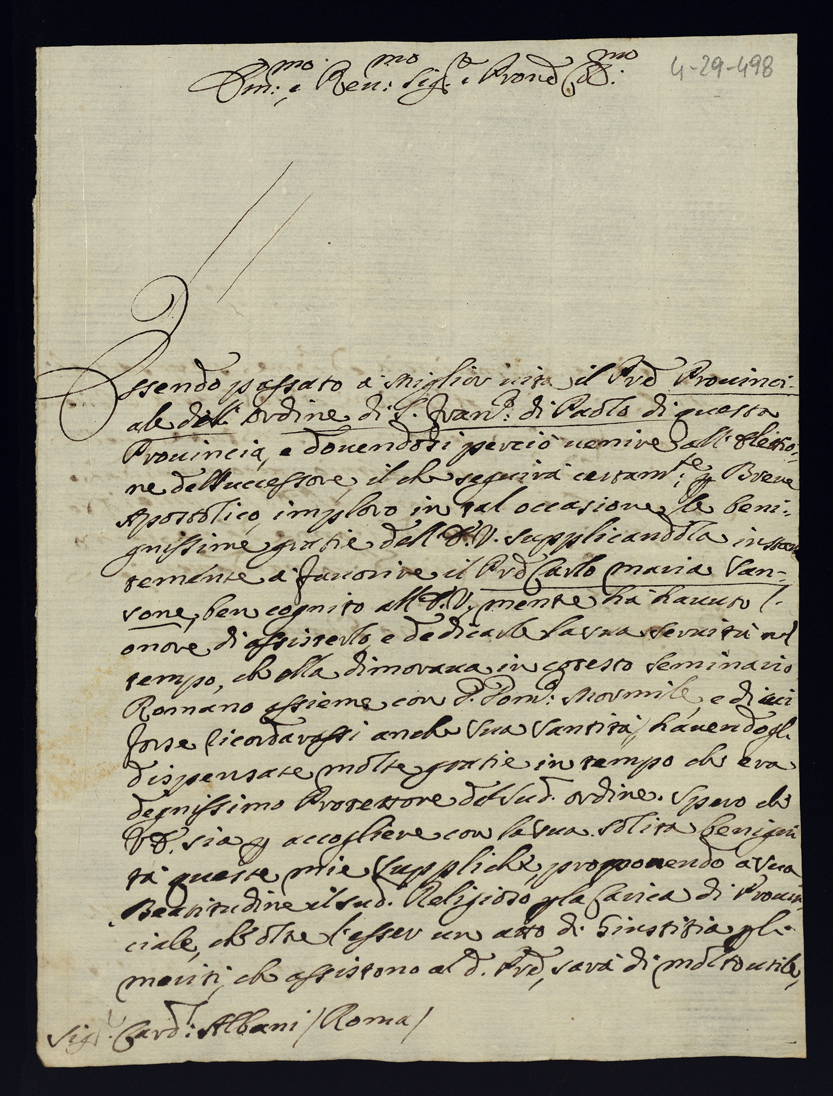 Em:mo e Ren:mo Sig:re e Prone Col:mo
4-29-498
Essendo passato à miglior vita il Prē Provinci-
ale dell' ordine di S. Fran:o di Paolo di questa
Provincia, e dovendosi perciò venire all' Elettio-
ne del successore, il che seguirà certam:te p Breve
Apostolico, imploro in tal occasione le beni-
gnissime gratie dell' E.V. supplicandola instan
temente à favorire il Prē Carlo maria San-
sone, ben cognito all' E.V. mentre hà havuto l'
onore di assisterlo, e dedicarle la sua servitù nel
tempo, che ella dimorava in cotesto Seminario
Romano assieme con D. Dom:o Mormile, e di cui
forse ricordarassi anche Sua Santità, havendogli
dispensate molte gratie in tempo che era
degnissimo Protettore del sud. ordine. Spero che
V.E. sia p accogliere con la sua solita benigni
tà queste mie suppliche, proponendo a Sua
Beatitudine il sud. Religioso p la Carica di Provin
ciale, che oltre l'esser un atto di Giustitia p li
meriti, che assistono al d. Prē, sarà di molto utile,
Sig:r Card: Albani / Roma /